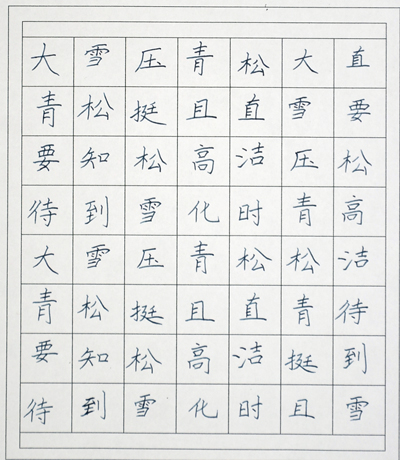 大雪压青松大直
青松挺且直雪要
要知松高洁压松
待到雪化时青高
大雪压青松松洁
青松挺且直青待
要知松高洁挺到
待到雪化时且雪